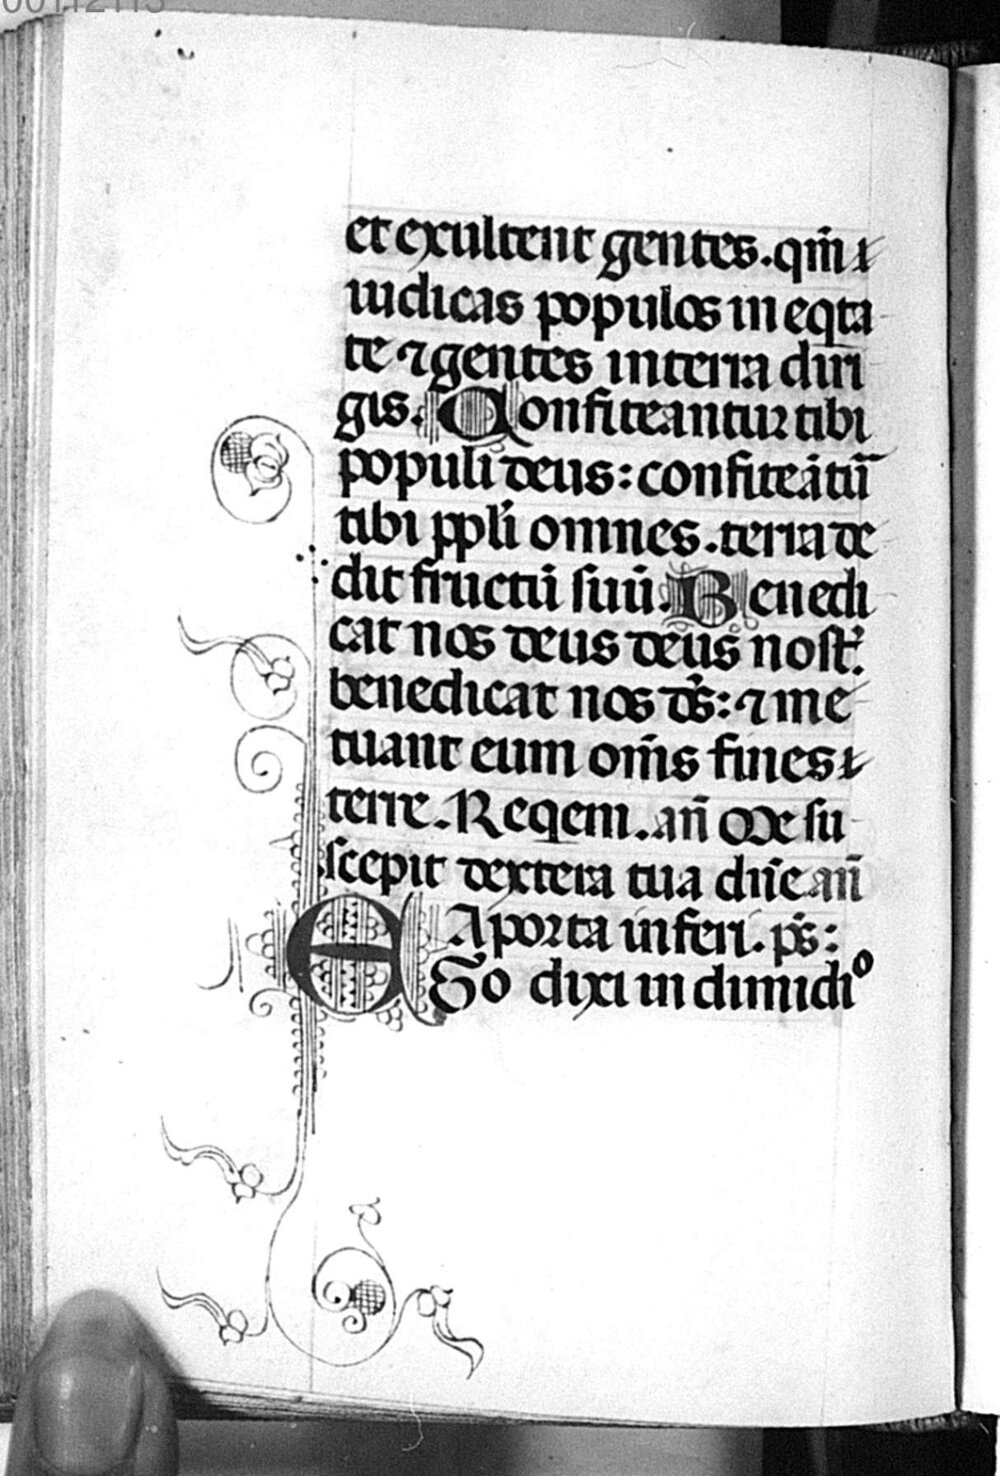 00112113
et exultent gentes. qm̄
iudicas populos in eq̄ta
te ⁊ gentes in terra diri
gis. Confiteantur tibi
populi deus: confiteāt̄
tibi ppl̄i omnes. terra de
dit fructū suū. Benedi
cat nos deus deus nost̄.
benedicat nos ds̄: ⁊ me
tuant eum om̄s fines
terre. Reqem. an̄ Me su
scepit dextera tua dn̄e an̄
A porta inferi. ps̄:
Ego dixi in dimidiᵒ